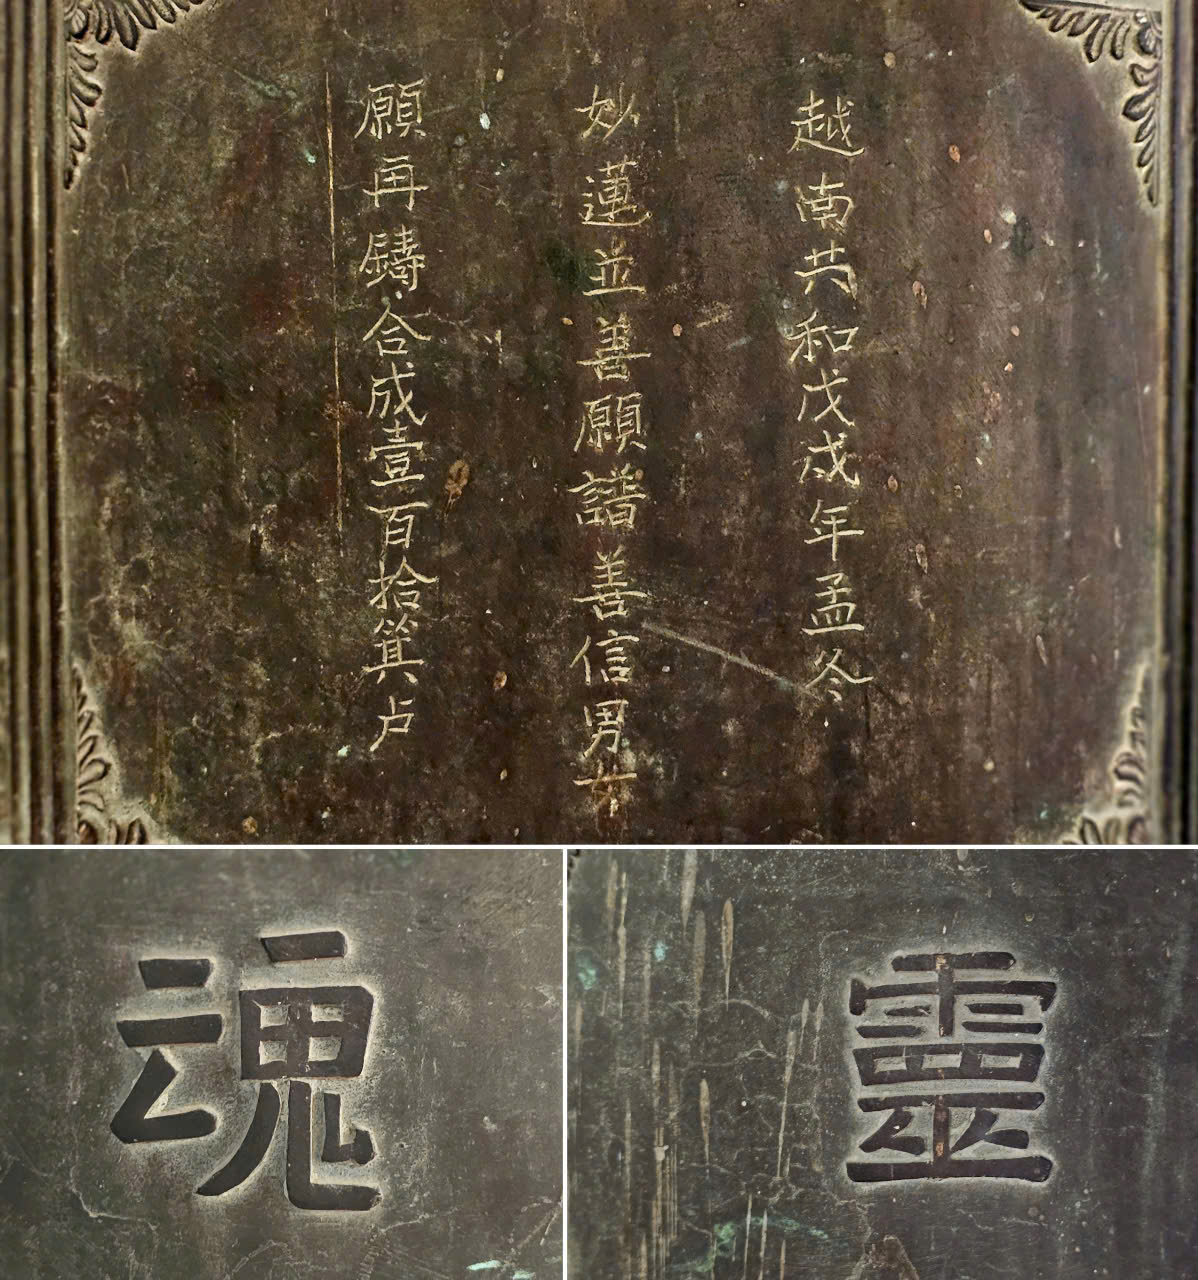 越南共和戊戌年孟冬
妙蓮並善願譜善信男女
願再鑄合成壹百拾箕卢
魂
靈